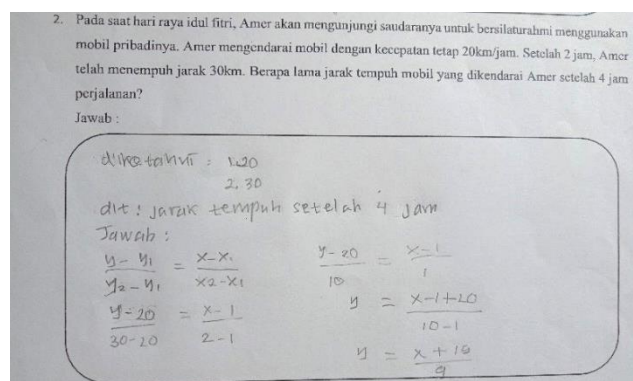 2. Pada saat hari raya idul fitri, Amer akan mengunjungi saudaranya untuk bersilaturahmi menggunakan
mobil pribadinya. Amer mengendarai mobil dengan kecepatan tetap 20km/jam. Setelah 2 jam, Amer
telah menempuh jarak 30km. Berapa lama jarak tempuh mobil yang dikendarai Amer setelah 4 jam
perjalanan?
Jawab :
diketahui : 1.20
2. 30
dit : jarak tempuh setelah 4 jam
Jawab :
y - y₁ / y₂ - y₁ = x - x₁ / x₂ - x₁
y - 20 / 30 - 20 = x - 1 / 2 - 1
y - 20 / 10 = x - 1 / 1
y = x - 1 + 20 / 10 - 1
y = x + 19 / 9